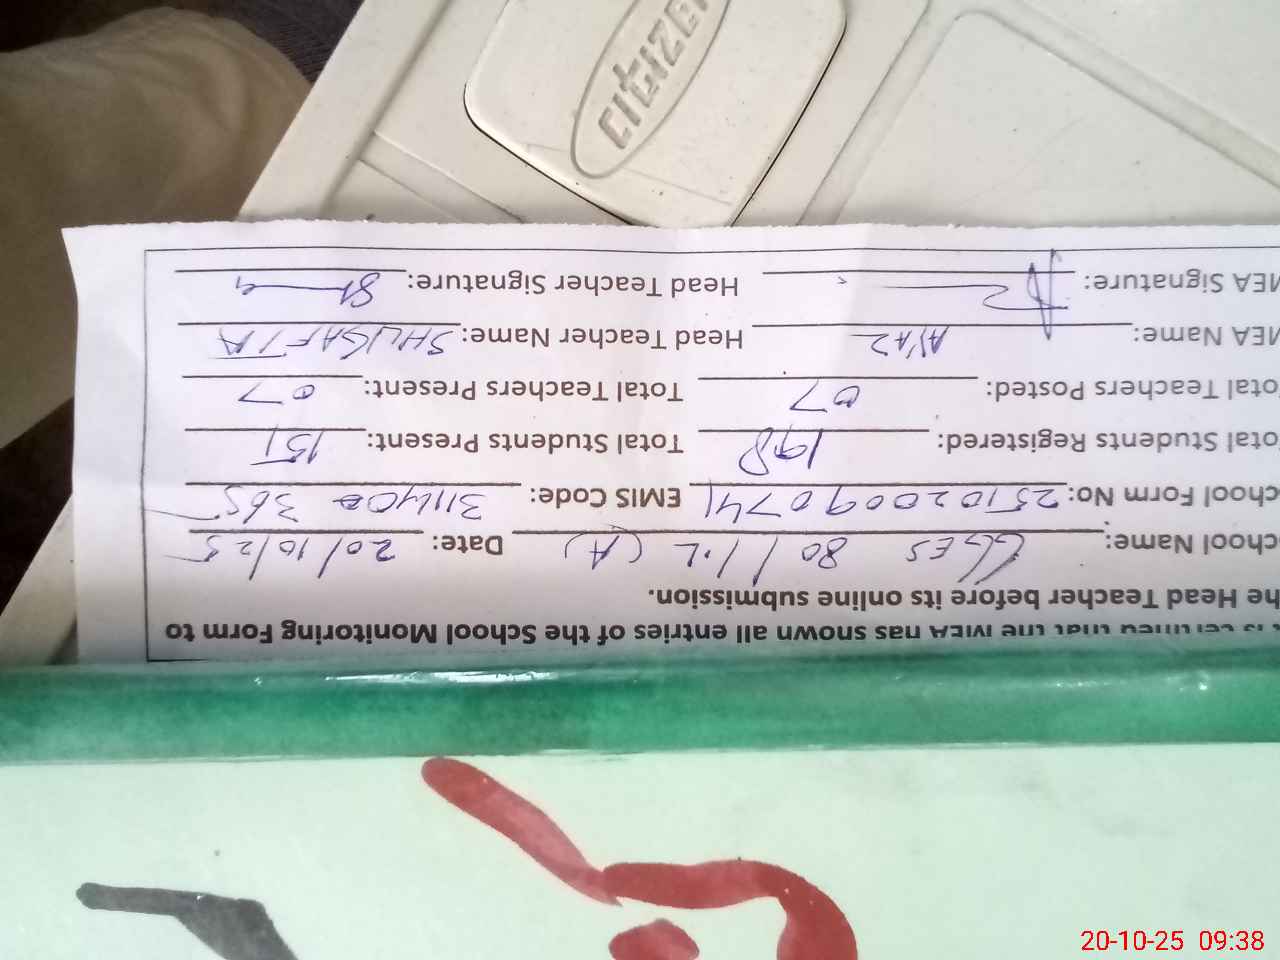 CITIZEN
t is certified that the MEA has shown all entries of the School Monitoring Form to
he Head Teacher before its online submission.
chool Name: GGES 80/1.L (A) Date: 20/10/25
chool Form No: 251020090741 EMIS Code: 31140 365
otal Students Registered: 198 Total Students Present: 151
otal Teachers Posted: 07 Total Teachers Present: 07
MEA Name: AYAZ Head Teacher Name: SHUGAFTA
MEA Signature: Head Teacher Signature:
20-10-25 09:38